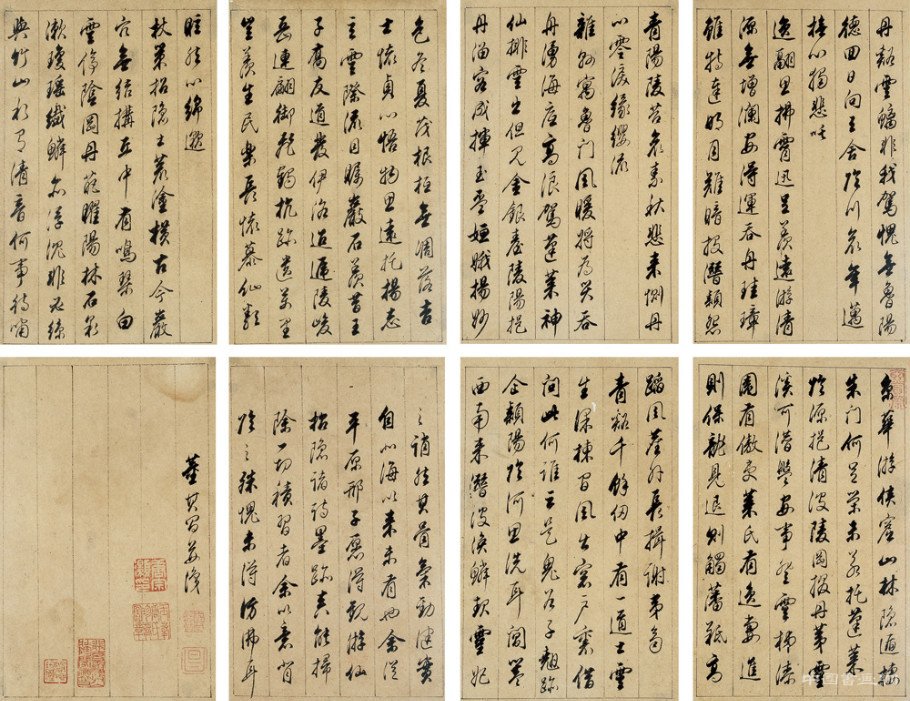 丹谿雲螭非我駕愧無魯陽
德回日向三舍臨川哀年邁
撫心獨悲吒
逸翮思拂霄迅足羨遠游清
源無增瀾安得運吞舟珪璋
雖特達明月難暗投潛穎怨
青陽陵苕哀素秋悲來惻丹
心零淚緣纓流
雜縣寓魯門風暖將為災吞
舟湧海底高浪駕蓬萊神
仙排雲出但見金銀臺陵陽挹
丹溜容成揮玉杯姮娥揚妙
色冬夏茂根柢無凋落吉
士懷貞心悟物思遠托揚志
玄雲際流目矚巖石羨昔王
子喬友道發伊洛迢遞陵峻
岳連翩御飛鶴抗跡遺萬里
豈羨生民樂長懷慕仙類
眩然心綿邈
杖策招隱士荒塗橫古今巖
穴無結構丘中有鳴琴白
雲停陰岡丹葩曜陽林石泉
漱瓊瑤纖鱗亦浮沉非必絲
與竹山水有清音何事待嘯
京華游俠窟山林隱遁棲
朱門何足榮未若托蓬萊
臨源挹清波陵岡掇丹荑靈
溪可潛盤安事登雲梯漆
園有傲吏萊氏有逸妻進
則保龍見退則觸藩羝高
蹈風塵外長揖謝夷齊
青谿千餘仞中有一道士雲
生梁棟間風出窗戶裏借
問此何誰云是鬼谷子翹跡
企潁陽臨河思洗耳閶闔
西南來潛波渙鱗起靈妃
誚然其骨氣勁健實
自以來未有也余從
平原邢子愿得觀游仙
招隱諸詩墨跡真能掃
除一切積習者余以意背
臨之殊愧未得彷彿耳
董其昌並識